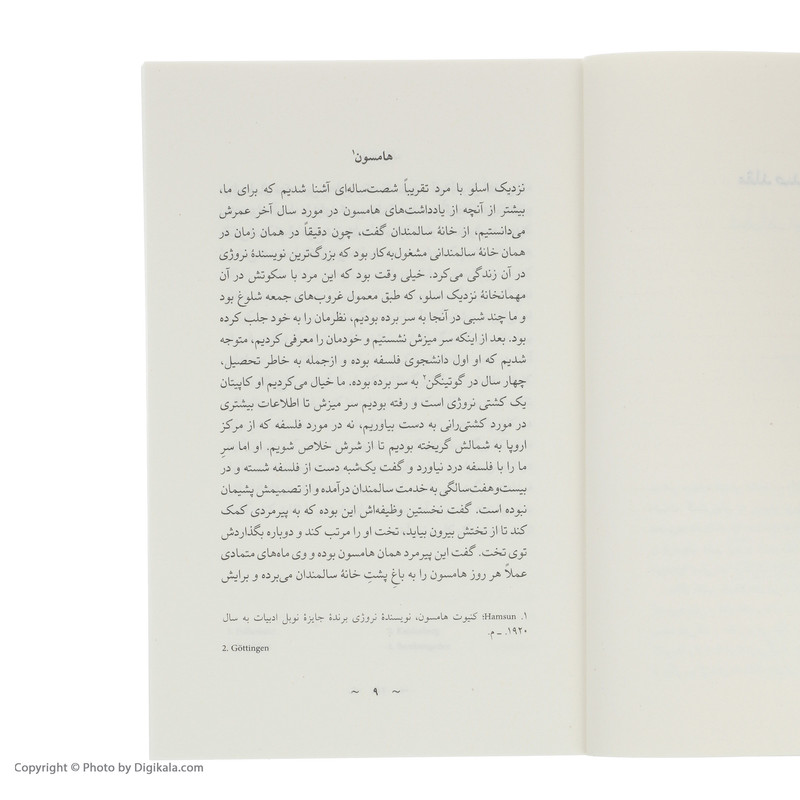 هامسون۱
نزدیک اسلو با مرد تقریباً شصت‌ساله‌ای آشنا شدیم که برای ما،
بیشتر از آنچه از یادداشت‌های هامسون در مورد سال آخر عمرش
می‌دانستیم، از خانهٔ سالمندان گفت، چون دقیقاً در همان زمان در
همان خانهٔ سالمندانی مشغول‌به‌کار بود که بزرگ‌ترین نویسندهٔ نروژی
در آن زندگی می‌کرد. خیلی وقت بود که این مرد با سکوتش در آن
مهمانخانهٔ نزدیک اسلو، که طبق معمول غروب‌های جمعه شلوغ بود
و ما چند شبی در آنجا به سر برده بودیم، نظرمان را به خود جلب کرده
بود. بعد از اینکه سر میزش نشستیم و خودمان را معرفی کردیم، متوجه
شدیم که او اول دانشجوی فلسفه بوده و ازجمله به خاطر تحصیل،
چهار سال در گوتینگن۲ به سر برده بوده. ما خیال می‌کردیم او کاپیتان
یک کشتی نروژی است و رفته بودیم سر میزش تا اطلاعات بیشتری
در مورد کشتی‌رانی به دست بیاوریم، نه در مورد فلسفه که از مرکز
اروپا به شمالش گریخته بودیم تا از شرش خلاص شویم. او اما سرِ
ما را با فلسفه درد نیاورد و گفت یک‌شبه دست از فلسفه شسته و در
بیست‌وهفت‌سالگی به خدمت سالمندان درآمده و از تصمیمش پشیمان
نبوده است. گفت نخستین وظیفه‌اش این بوده که به پیرمردی کمک
کند تا از تختش بیرون بیاید، تخت او را مرتب کند و دوباره بگذاردش
توی تخت. گفت این پیرمرد همان هامسون بوده و وی ماه‌های متمادی
عملاً هر روز هامسون را به باغِ پشتِ خانهٔ سالمندان می‌برده و برایش
۱. Hamsun؛ کنیوت هامسون، نویسندهٔ نروژی برندهٔ جایزهٔ نوبل ادبیات به سال
۱۹۲۰. ــ م.
2. Göttingen
~ ۹ ~
Copyright © Photo by Digikala.com